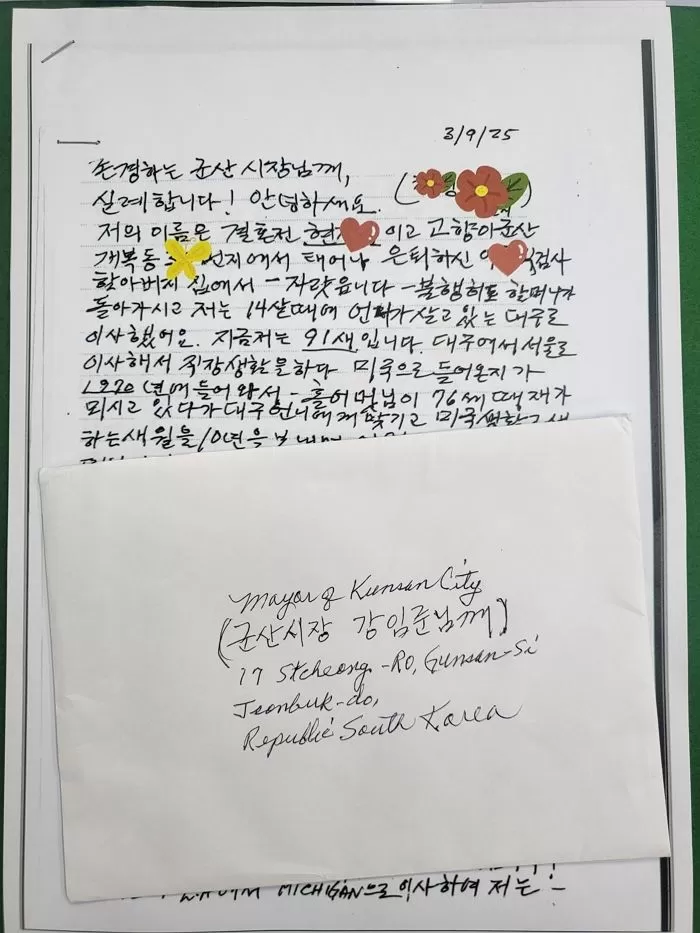 3/9/25
존경하는 군산 시장님께,
실례합니다! 안녕하세요.
저의 이름은 결혼전 현 이고 고향이 군산
개복동 번지에서 태어나 은퇴하신 검사
할아버지 집에서 - 자랐읍니다 - 불행히도 할머니가
돌아가시고 저는 14살때에 언니가 살고 있는 대구로
이사했어요. 지금 저는 91세입니다. 대구에서 서울로
이사해서 직장생활을 하다 미국으로 들어온지가
1970 년에 들어와서 - 홀어머님이 76세 때 제가
모시고 있다가 대구언니에게 맞기고 미국
하는 세월을 10년을
MICHIGAN으로 이사하여 저는 -
Mayor of Kunsan City
(군산시장 강임준님께)
17 Stcheong-Ro, Gunsan-Si
Jeonbuk-do,
Republic South Korea